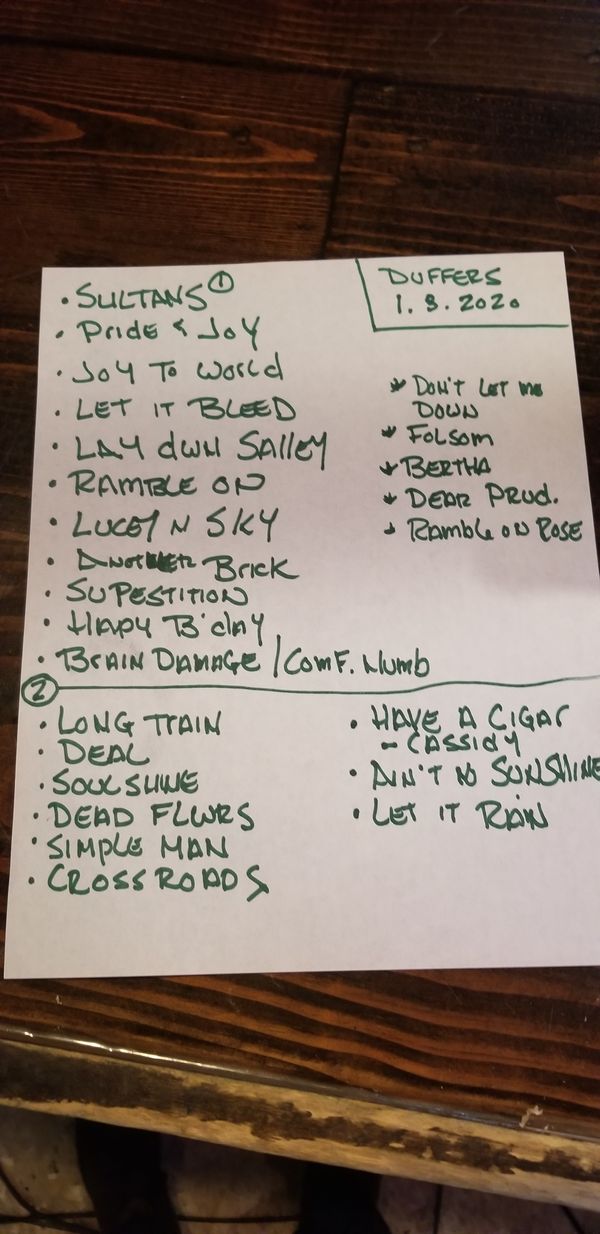 SULTANS ①
Pride & JOY
JOY TO WORLD
LET IT BLEED
LAY dWN SAllEY
RAMBLE ON
LUCEY N SKY
ANOTHER BRICK
SUPESTITION
HAPY B'dAY
BRAIN DAMAGE / COMF. NUMB
DUFFERS
1. 3. 2020
DON'T LET ME
DOWN
FOLSOM
BERTHA
DEAR PRUD.
RAMBLE ON ROSE
②
LONG TRAIN
DEAL
SOULSHINE
DEAD FLWRS
SIMPLE MAN
CROSSROADS
HAVE A CIGAR
- CASSIDY
AIN'T NO SUNSHINE
LET IT RAIN